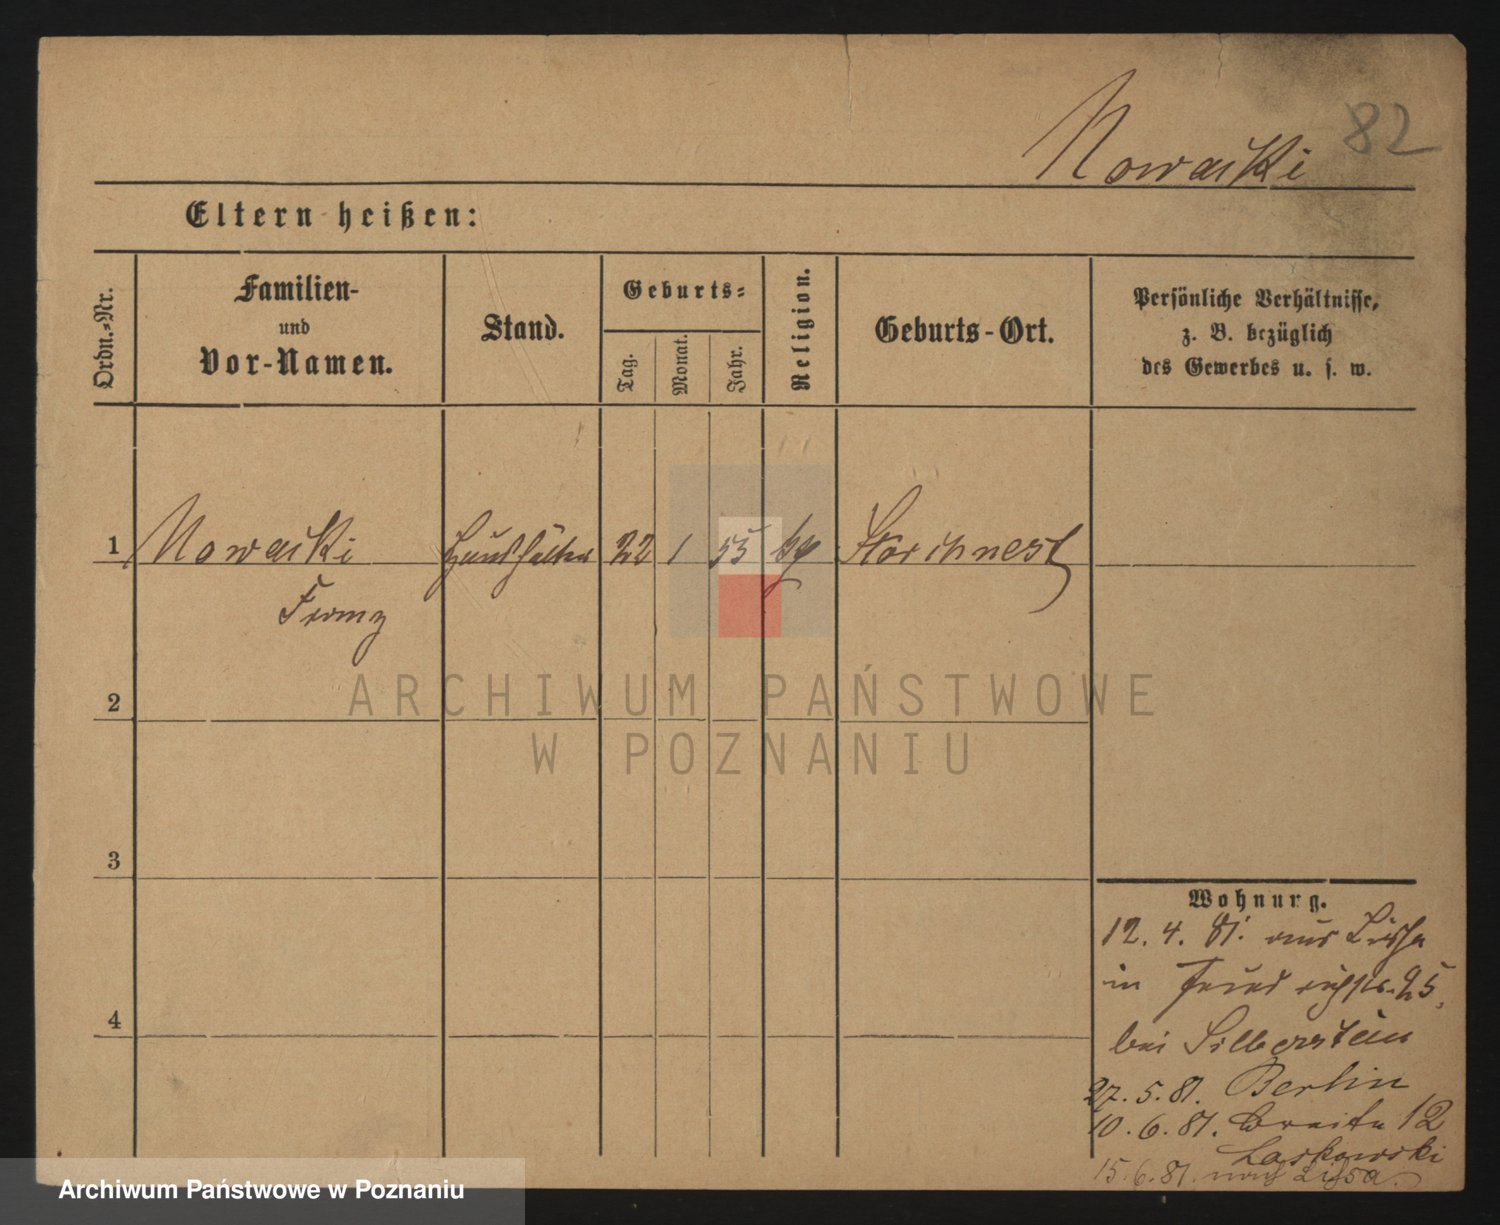 82
Nowacki
Eltern heißen:
Ordn.-Nr.
Familien-
und
Vor-Namen.
Stand.
Geburts-
Tag.
Monat.
Jahr.
Religion.
Geburts-Ort.
Persönliche Verhältnisse,
z. B. bezüglich
des Gewerbes u. s. w.
1 Nowacki Haushälter 22 1 55 kg Storchnest
Franz
ARCHIWUM PAŃSTWOWE
W POZNANIU
2
3
4
Wohnung.
12. 4. 81. aus Lissa
in Friedrichstr. 25,
bei Silberstein
27. 5. 81. Berlin
10. 6. 81. Breite 12
Laskowski
15. 6. 81. nach Lissa.
Archiwum Państwowe w Poznaniu